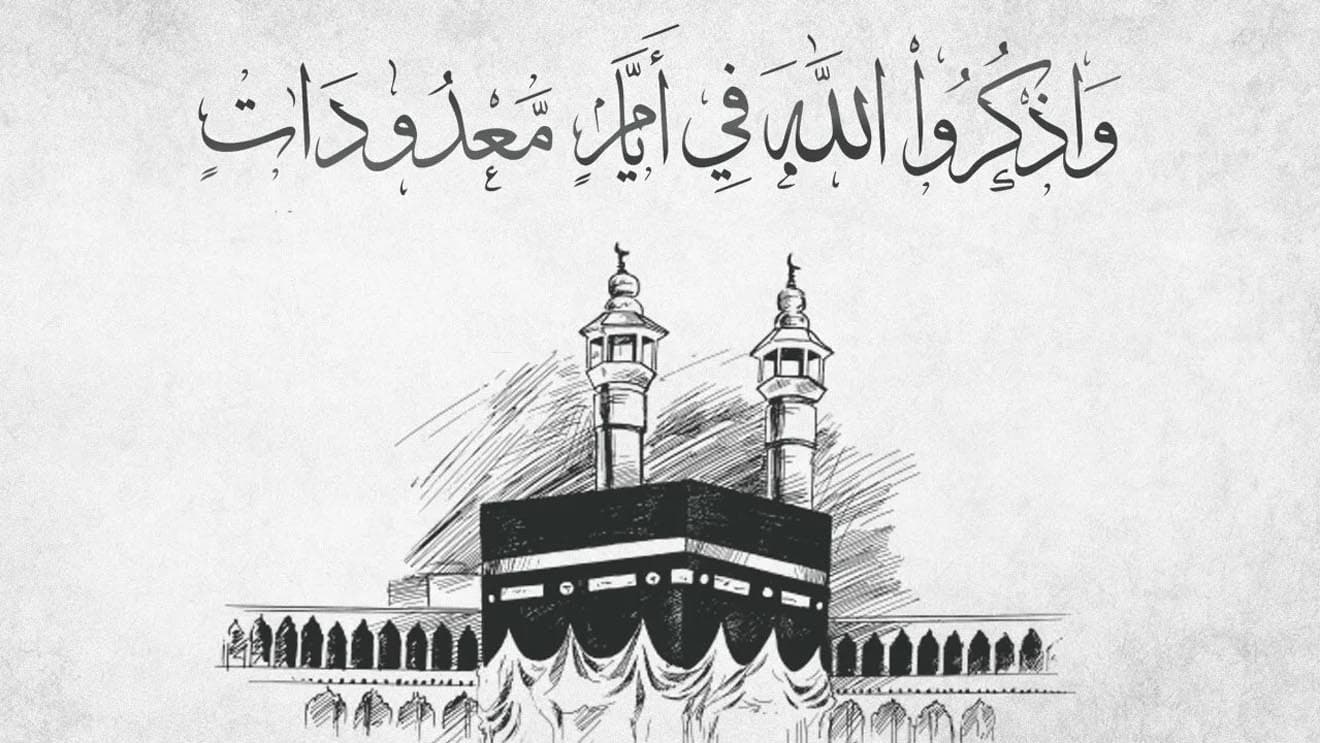 وَاذْكُرُواْ اللَّهَ فِي أَيَّامٍ مَّعْدُودَاتٍ